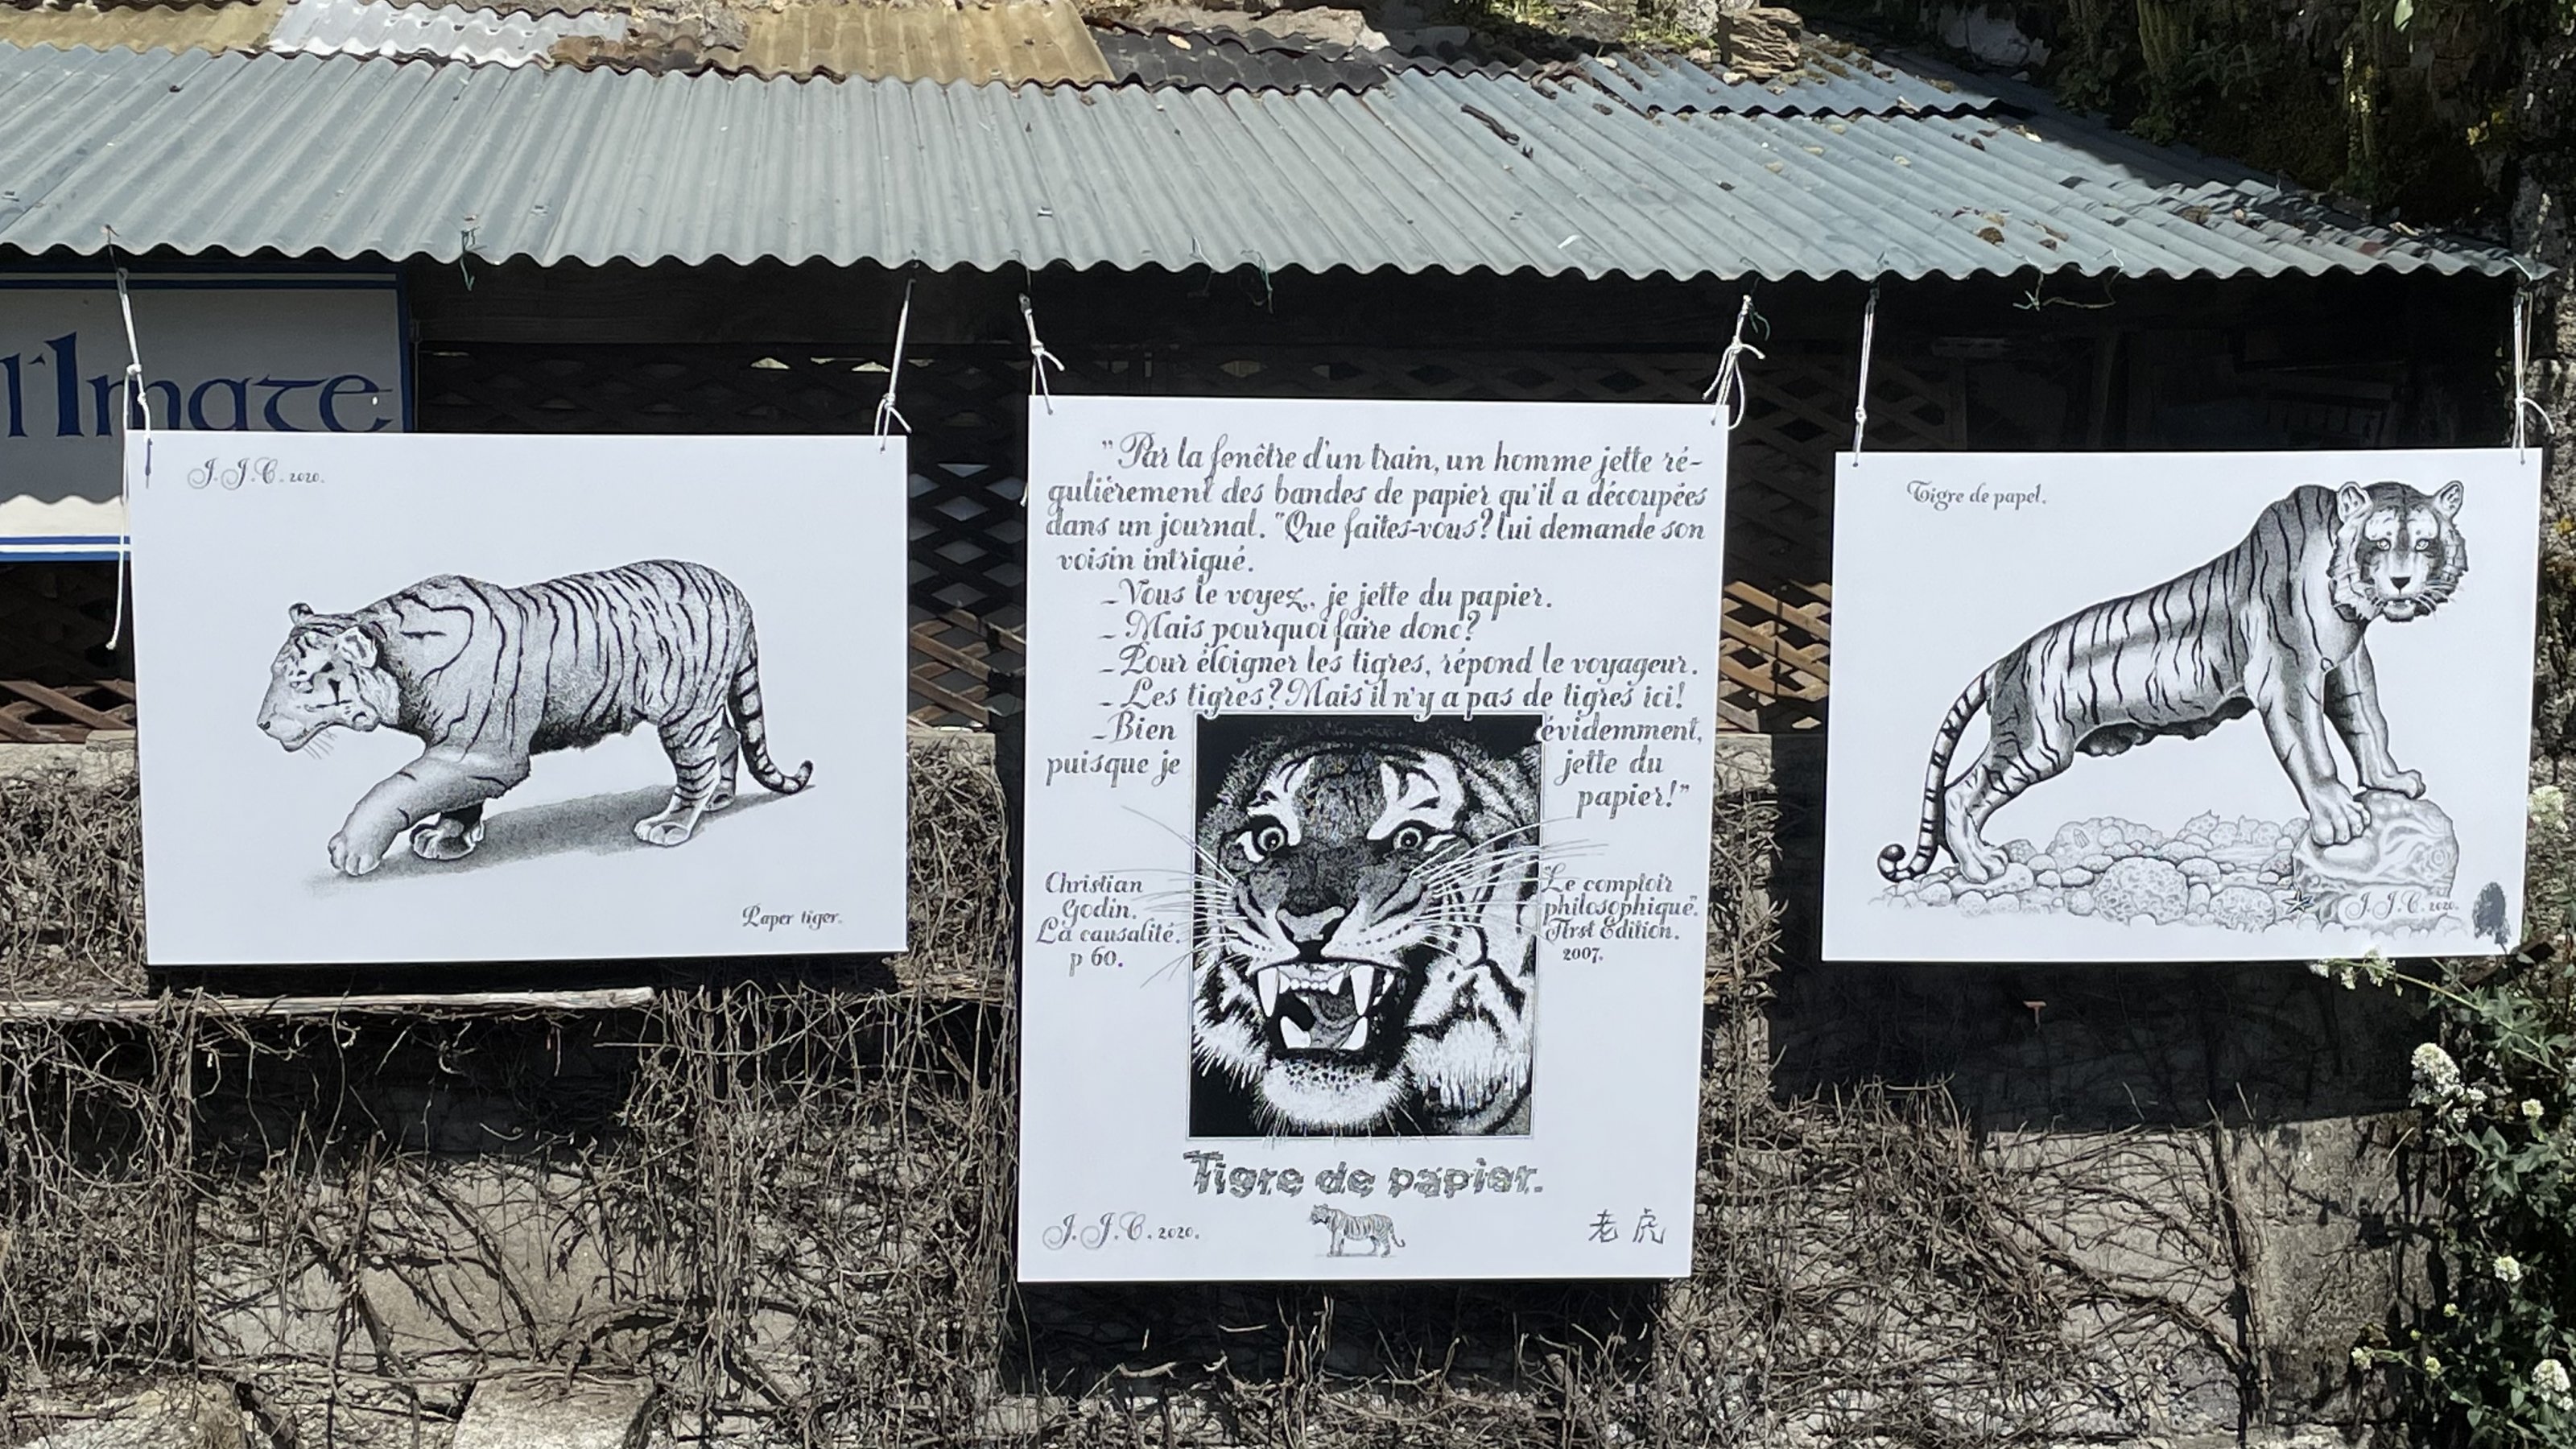 l'Image
J.J.C. 2020.
Paper tiger.
"Par la fenêtre d'un train, un homme jette ré-
gulièrement des bandes de papier qu'il a découpées
dans un journal. "Que faites-vous? lui demande son
voisin intrigué.
-Vous le voyez, je jette du papier.
- Mais pourquoi faire donc?
-Pour éloigner les tigres, répond le voyageur.
- Les tigres? Mais il n'y a pas de tigres ici!
-Bien évidemment,
puisque je jette du
papier!"
Christian
Godin.
La causalité.
p 60.
Le comptoir
philosophique.
First Edition.
2007.
Tigre de papier.
J.J.C. 2020.
老虎
Tigre de papel.
J.J.C. 2020.